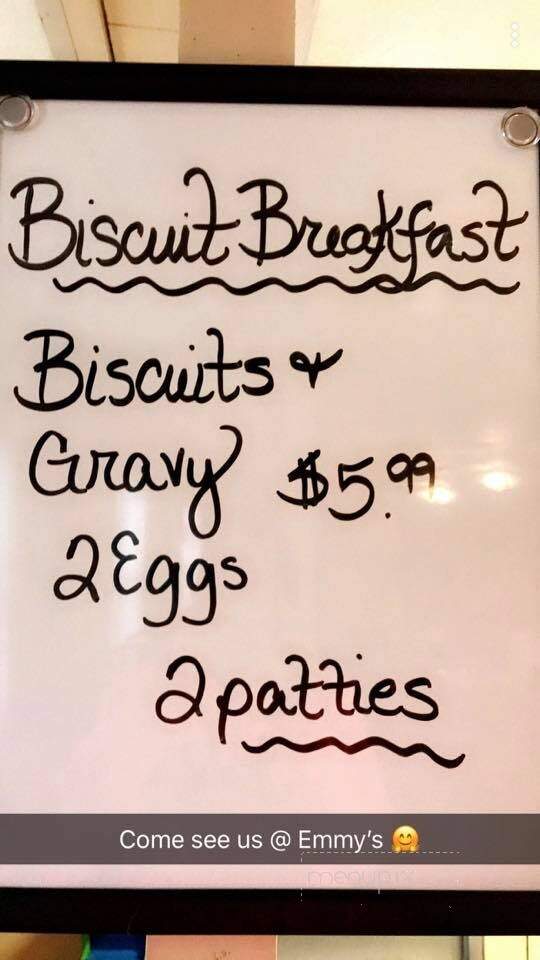 Biscuit Breakfast
Biscuits &
Gravy $5.99
2 Eggs
2 patties
Come see us @ Emmy's 🤗